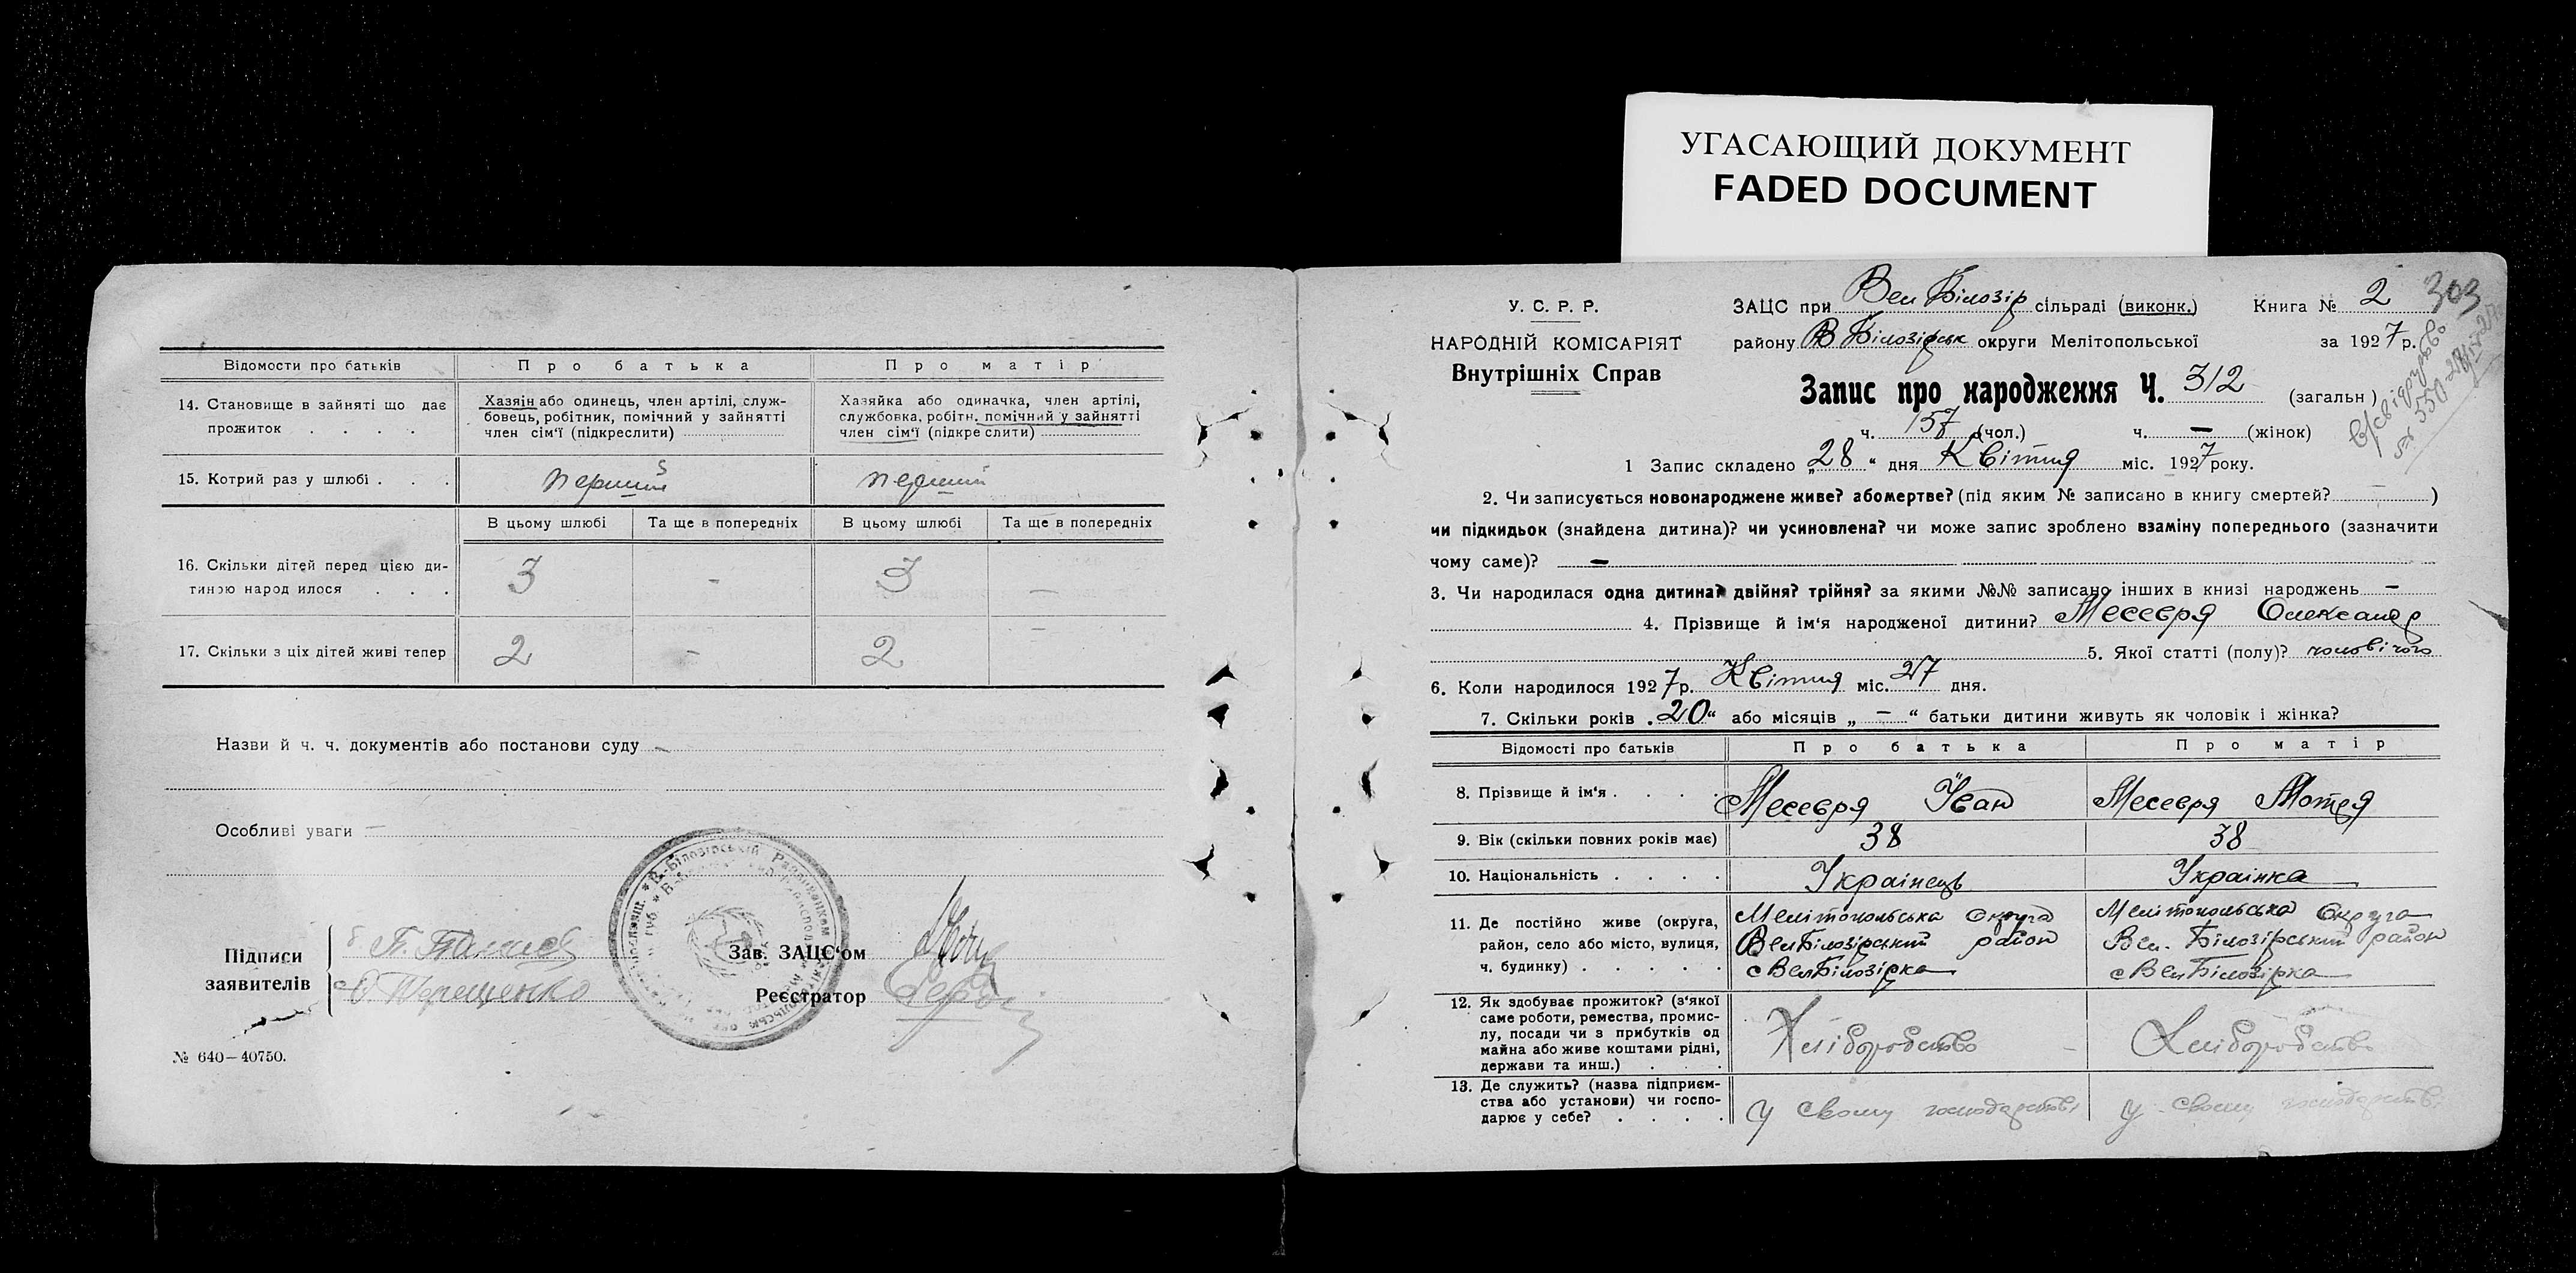 УГАСАЮЩИЙ ДОКУМЕНТ
FADED DOCUMENT
Відомости про батьків
Про батька
Про матір
14. Становище в зайняті що дає прожиток . . . .
Хазяін або одинець, член артілі, служ-
бовець, робітник, помічний у зайнятті
член сім'ї (підкреслити)
Хазяйка або одиначка, член артілі,
службовка, робітн. помічний у зайнятті
член сім'ї (підкреслити)
15. Котрий раз у шлюбі . . .
перший
перший
В цьому шлюбі
Та ще в попередніх
В цьому шлюбі
Та ще в попередніх
16. Скільки дітей перед цією ди-
тиною народилося . . .
3 - 3 —
17. Скільки з ціх дітей живі тепер
2 - 2 —
Назви й ч. ч. документів або постанови суду —
Особливі уваги —
Підписи
заявителів
О. Терещенко
Зав. ЗАЦС'ом
Реєстратор
№ 640—40750.
У. С. Р. Р.
НАРОДНІЙ КОМІСАРІЯТ
Внутрішніх Справ
ЗАЦС при Вел Білозір сільраді (виконк.)
Книга № 2
303
району В Білозірськ округи Мелітопольської
за 1927 р.
Запис про народження Ч. 312 (загальн)
ч. 157 (чол.) ч. — (жінок)
1 Запис складено „28“ дня Квітня міс. 1927 року.
2. Чи записується новонароджене живе? або мертве? (під яким № записано в книгу смертей? — )
чи підкидьок (знайдена дитина)? чи усиновлена? чи може запис зроблено взаміну попереднього (зазначити
чому саме)? —
3. Чи народилася одна дитина? двійня? трійня? за якими №№ записано інших в книзі народжень —
4. Прізвище й ім'я народженої дитини? Месевря Олександр
5. Якої статті (полу)? чоловічого
6. Коли народилося 1927 р. Квітня міс. 27 дня.
7. Скільки років „20“ або місяців „—“ батьки дитини живуть як чоловік і жінка?
Відомості про батьків
Про батька
Про матір
8. Прізвище й ім'я . . . .
Месевря Іван
Месевря Мотря
9. Вік (скільки повних років має)
38
38
10. Національність . . . .
Українець
Українка
11. Де постійно живе (округа,
район, село або місто, вулиця,
ч. будинку) . . . . .
Мелітопольська Округа
Вел Білозірський район
с Вел Білозірка
Мелітопольська Округа
Вел. Білозірський район
с Вел Білозірка
12. Як здобуває прожиток? (з'якої
саме роботи, ремества, промис-
лу, посади чи з прибутків од
майна або живе коштами рідні,
держави та инш.) . . .
Хліборобство
Хліборобство
13. Де служить? (назва підприєм-
ства або установи) чи госпо-
дарює у себе? . . . .
у своему господарстві
у своему господарстві